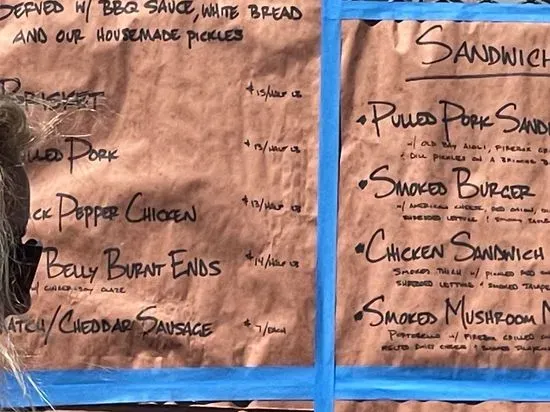 SERVED W/ BBQ SAUCE, WHITE BREAD
AND OUR HOUSEMADE PICKLES
BRISKET $15/HALF LB
LLED PORK $13/HALF LB
CK PEPPER CHICKEN $13/HALF LB
BELLY BURNT ENDS $14/HALF LB
W/ GINGER-SOY GLAZE
ATCH/CHEDDAR SAUSAGE $7/EACH
SANDWICH
• PULLED PORK SAND
W/ OLD BAY AIOLI, FIREBOX
+ DILL PICKLES ON A BRIOCHE B
• SMOKED BURGER
W/ AMERICAN CHEESE, RED ONION,
SHREDDED LETTUCE +
• CHICKEN SANDWICH
SMOKED THIGH W/ PICKLED RED
SHREDDED LETTUCE + SMOKED JALAPE
• SMOKED MUSHROOM
PORTOBELLO W/ FIREBOX GRILLED
MELTED CHEESE + SMOKED